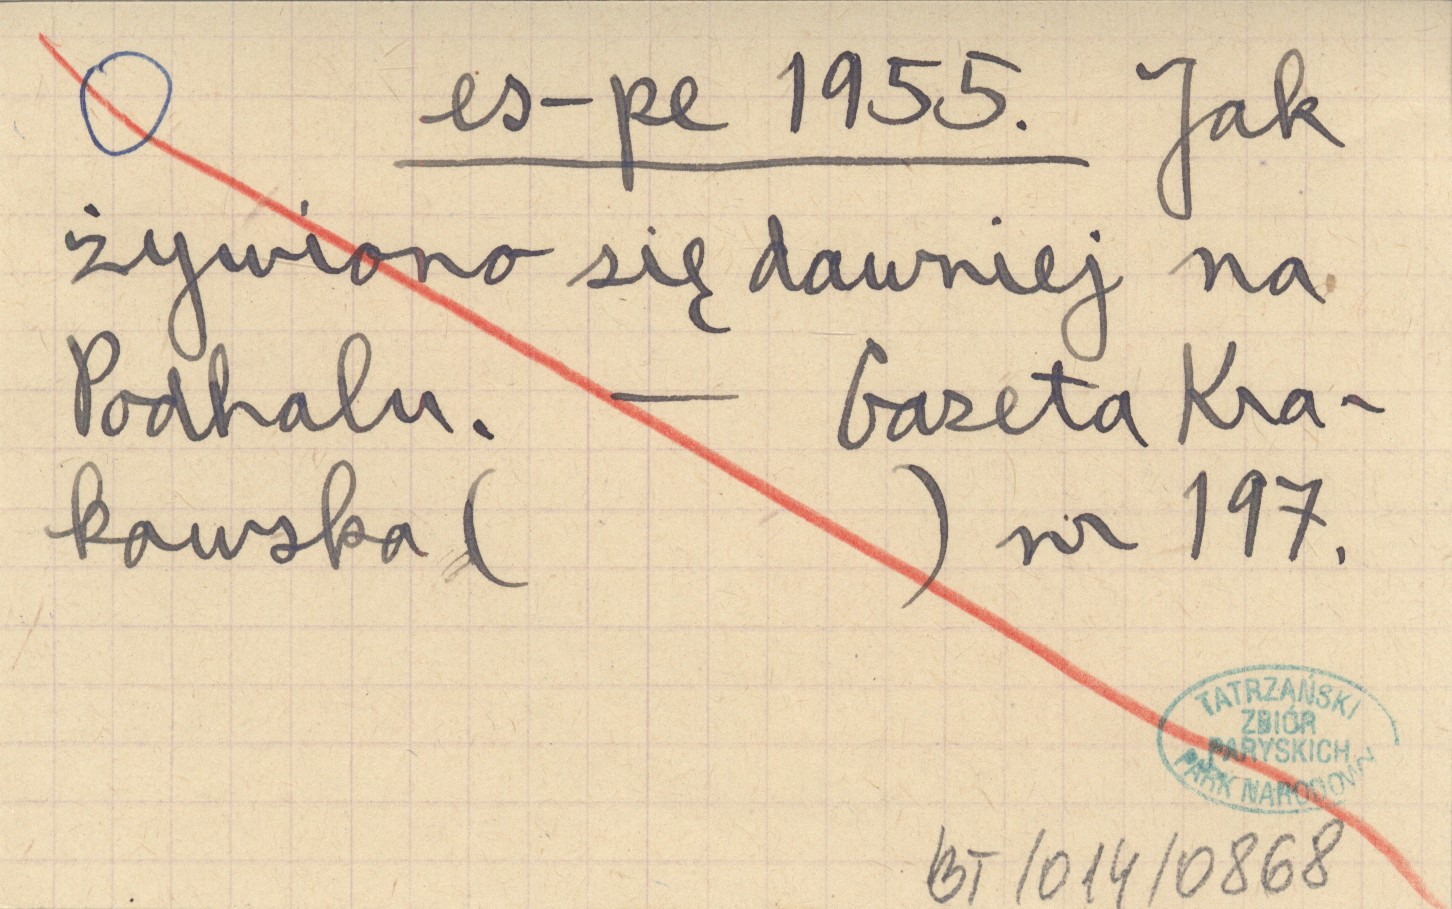 es-pe 1955. Jak
żywiono się dawniej na
Podhalu. — Gazeta Kra-
kowska ( ) nr 197.
TATRZAŃSKI
ZBIÓR
PARYSKICH
PARK NARODOWY
BT/014/0868